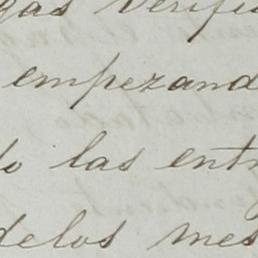 gas verifi
empezand
do las entr
delos mes